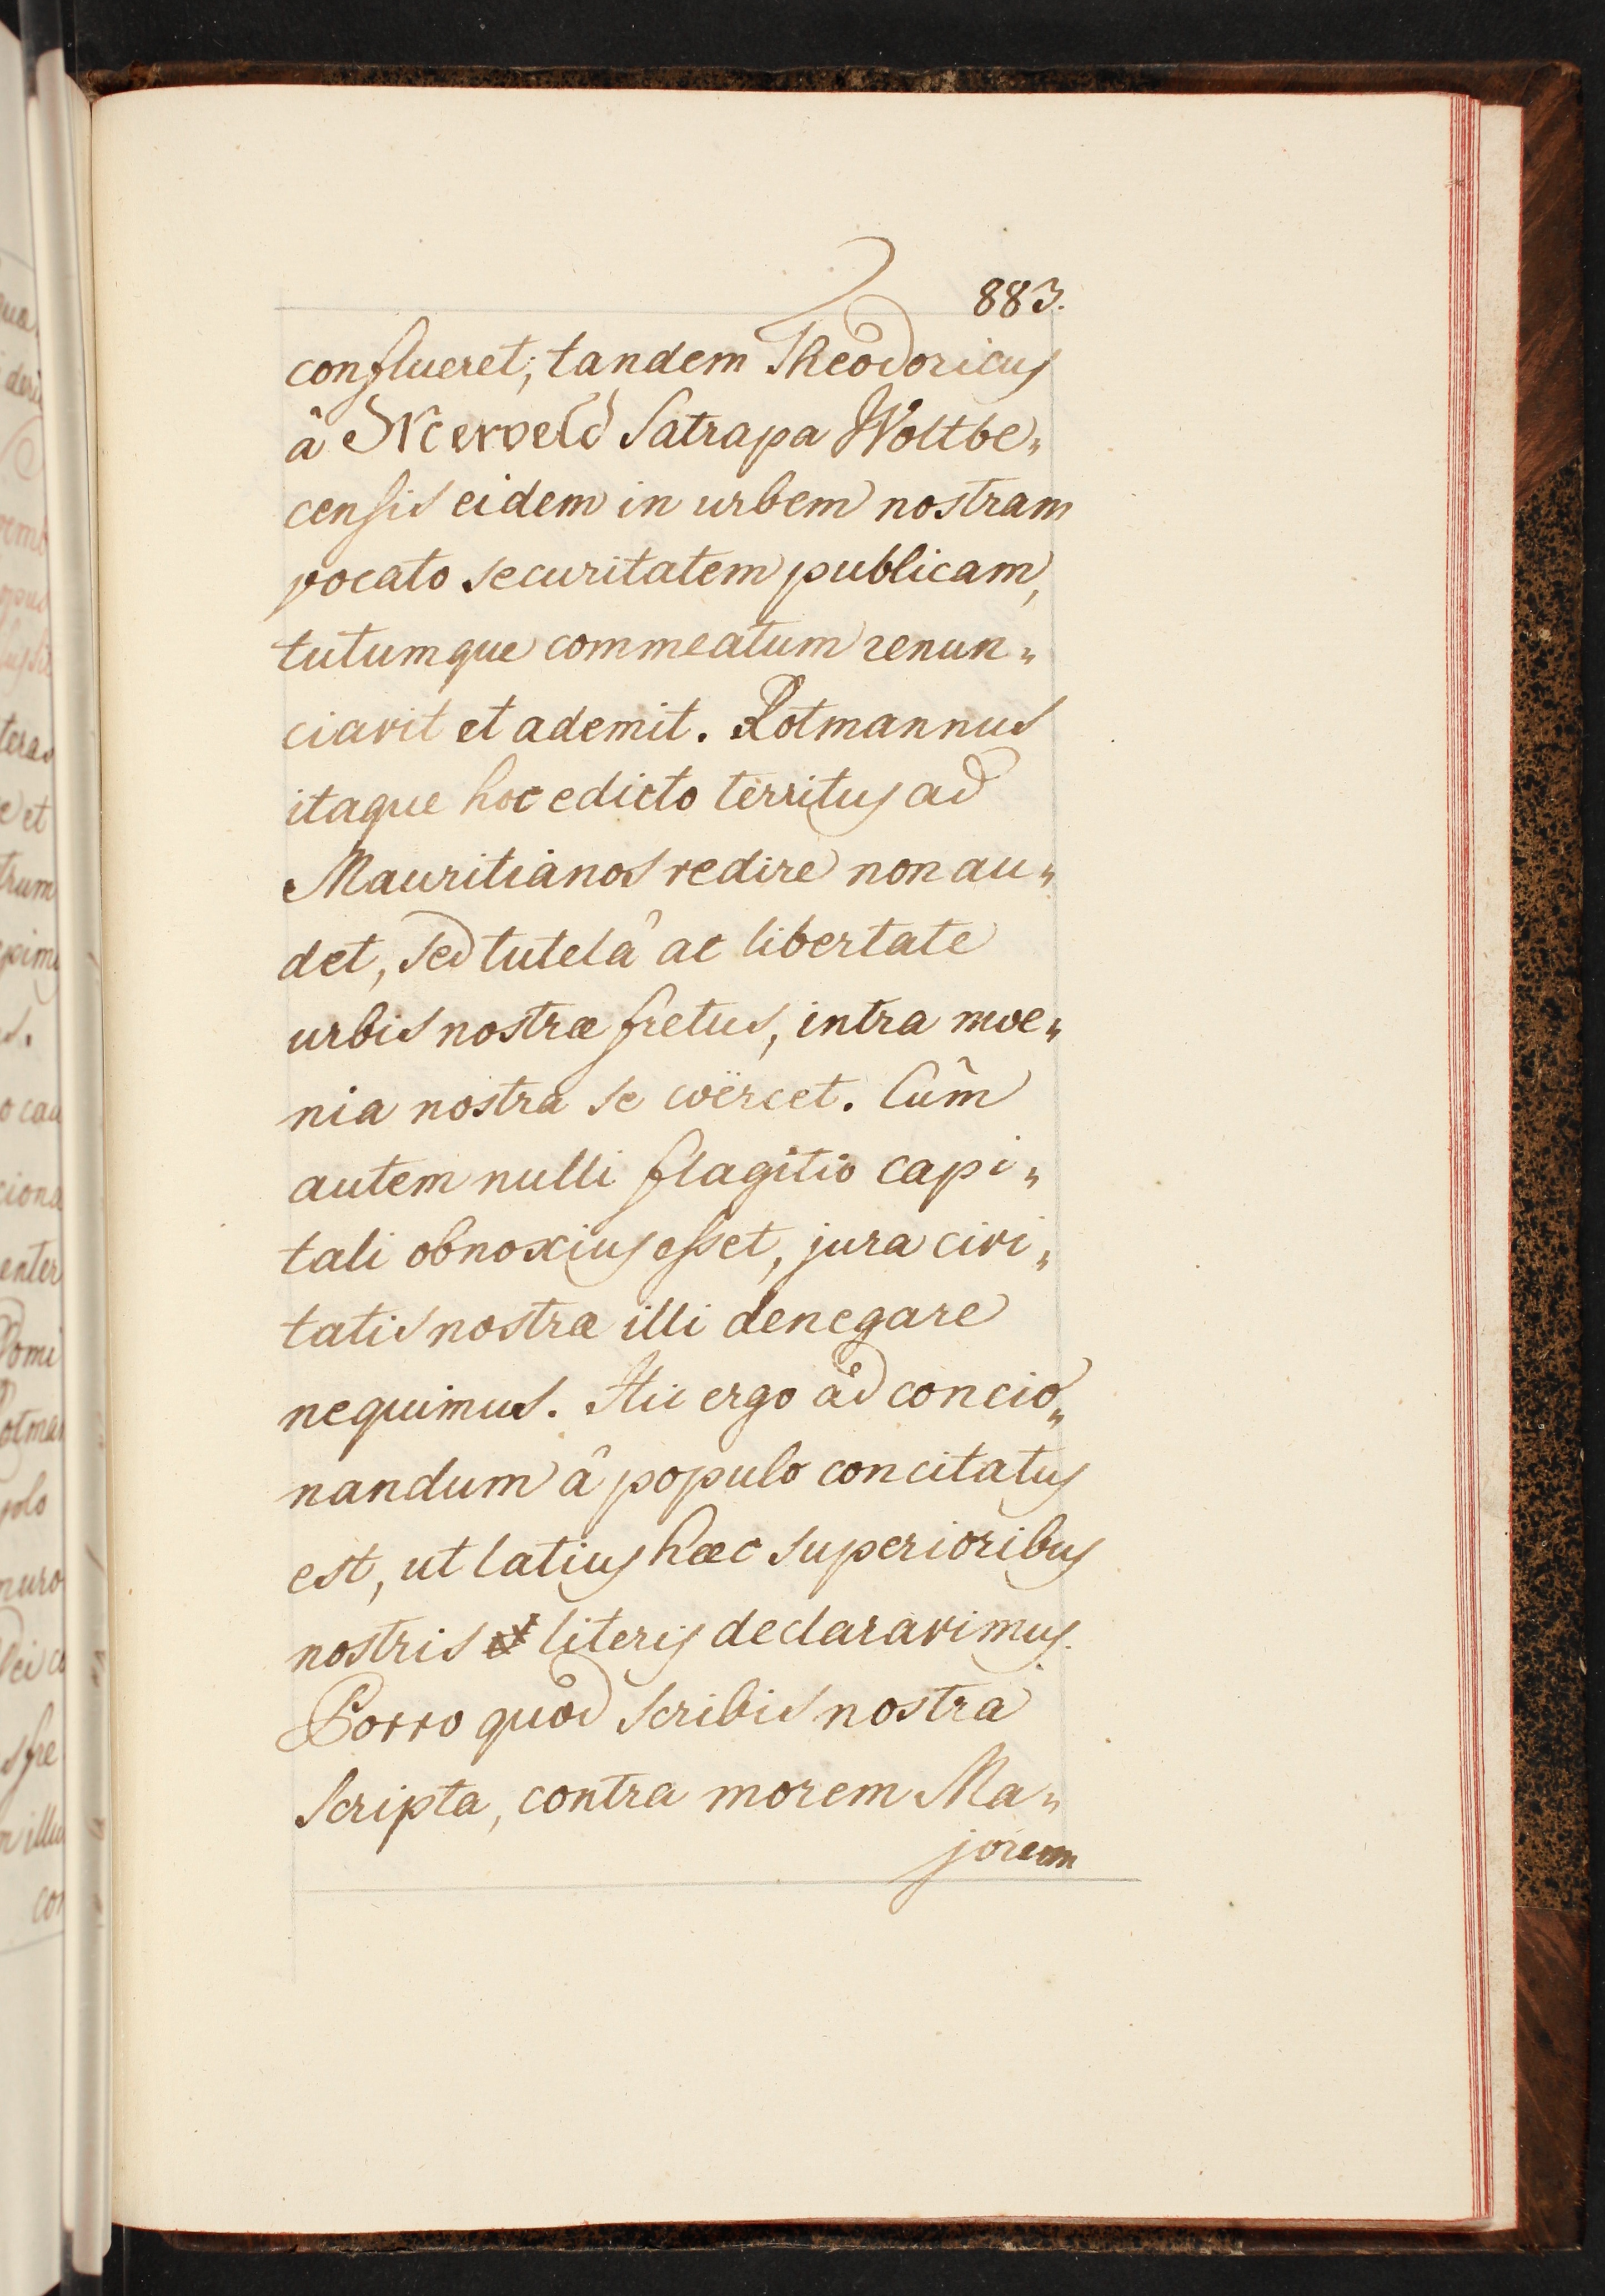 883.
conflueret; tandem Theodoricus
â Merveld Satrapa Woltbe„
censis eidem in urbem nostram
vocato securitatem publicam,
tutumque commeatum renun„
ciavit et ademit. Rotmannus
itaque hoc edicto territus ad
Mauritianos redire non au„
det, sed tutelâ ac libertate
urbis nostræ fretus, intra moe„
nia nostra se coërcet. Cûm
autem nulli flagitio capi„
tali obnoxius esset, jura civi„
tatis nostræ illi denegare
nequimus. Hic ergo ad concio„
nandum â populo concitatus
est, ut latius hæc superioribus
nostris literis declaravimus.
Porro quod scribis nostra
scripta, contra morem Ma„
jorem